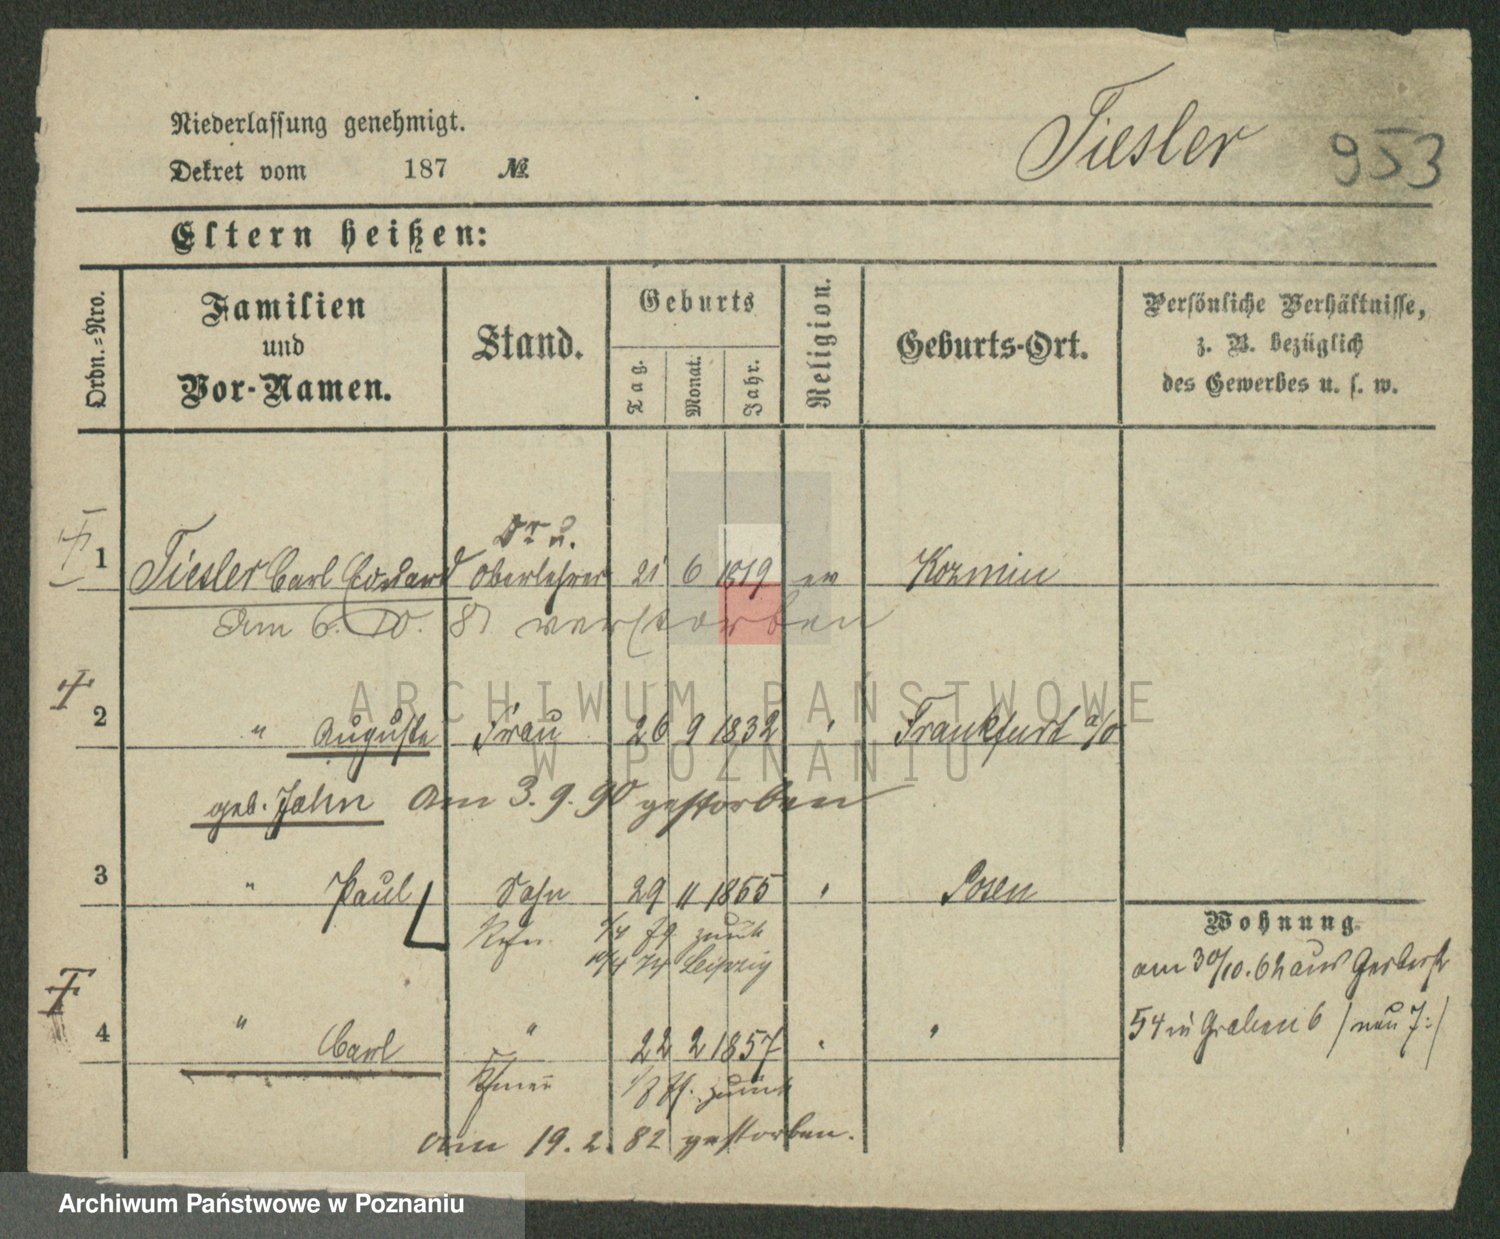 Niederlassung genehmigt.
Dekret vom 187 №
Tiesler 953
Eltern heißen:
Ordn.=Nro.
Familien
und
Vor-Namen.
Stand.
Geburts
Tag.
Monat.
Jahr.
Religion.
Geburts-Ort.
Persönliche Verhältnisse,
z. B. bezüglich
des Gewerbes u. s. w.
Dr u.
1 Tiesler Carl Eduard Oberlehrer 21 6 1819 ev Kozmin
Am 6. 10. 81 verstorben
2 " Auguste Frau 26 9 1832 " Frankfurt a/O
geb. Jahn am 3. 9. 90 gestorben
3 " Paul Sohn 29 11 1855 " Posen
79 zurück
74 Leipzig
Wohnung
am 30/10. 62 aus Gerberst
54 in Graben 6 /neu 7:/
4 " Carl " 22 2 1857 " "
zurück
am 19. 2. 82 gestorben.
ARCHIWUM PAŃSTWOWE
W POZNANIU
Archiwum Państwowe w Poznaniu